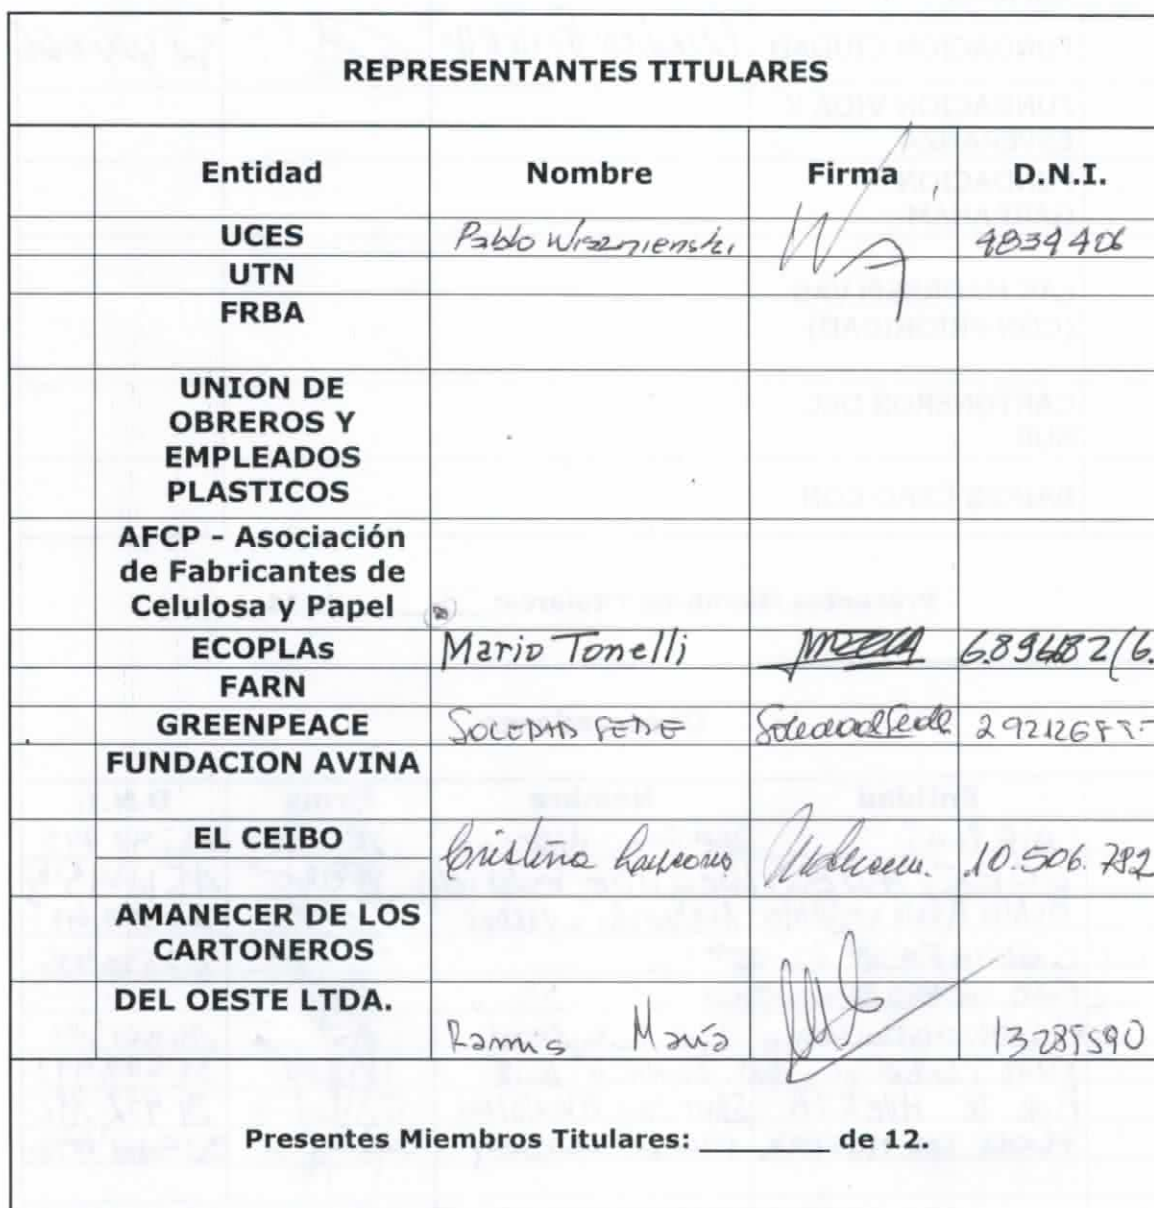 REPRESENTANTES TITULARES
Entidad Nombre Firma D.N.I.
UCES Pablo Wisznienski 4834406
UTN
FRBA
UNION DE
OBREROS Y
EMPLEADOS
PLASTICOS
AFCP - Asociación
de Fabricantes de
Celulosa y Papel
ECOPLAs Mario Tonelli
FARN
GREENPEACE SOLEDAD SEDE Soledad Sede
FUNDACION AVINA
EL CEIBO Cristina 10.506.782
AMANECER DE LOS
CARTONEROS
DEL OESTE LTDA.
Ramis María 13289590
Presentes Miembros Titulares: ________ de 12.